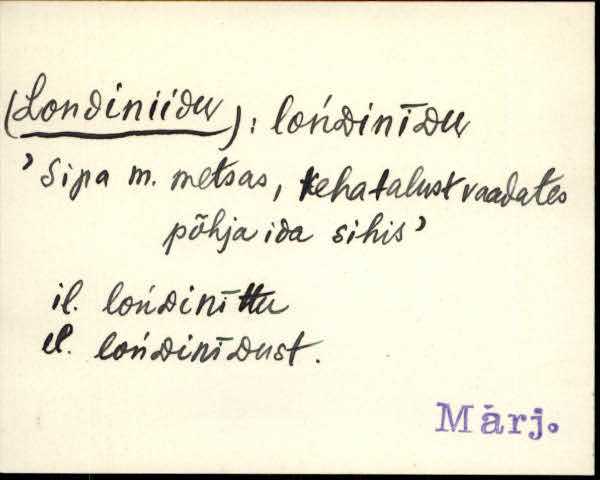 (Londiniidu): lońdinīdu
'Sipa m. metsas, kehatalust vaadates
põhja ida sihis'
il. lońdinīttu
el. lońdinīdust.
Märj.